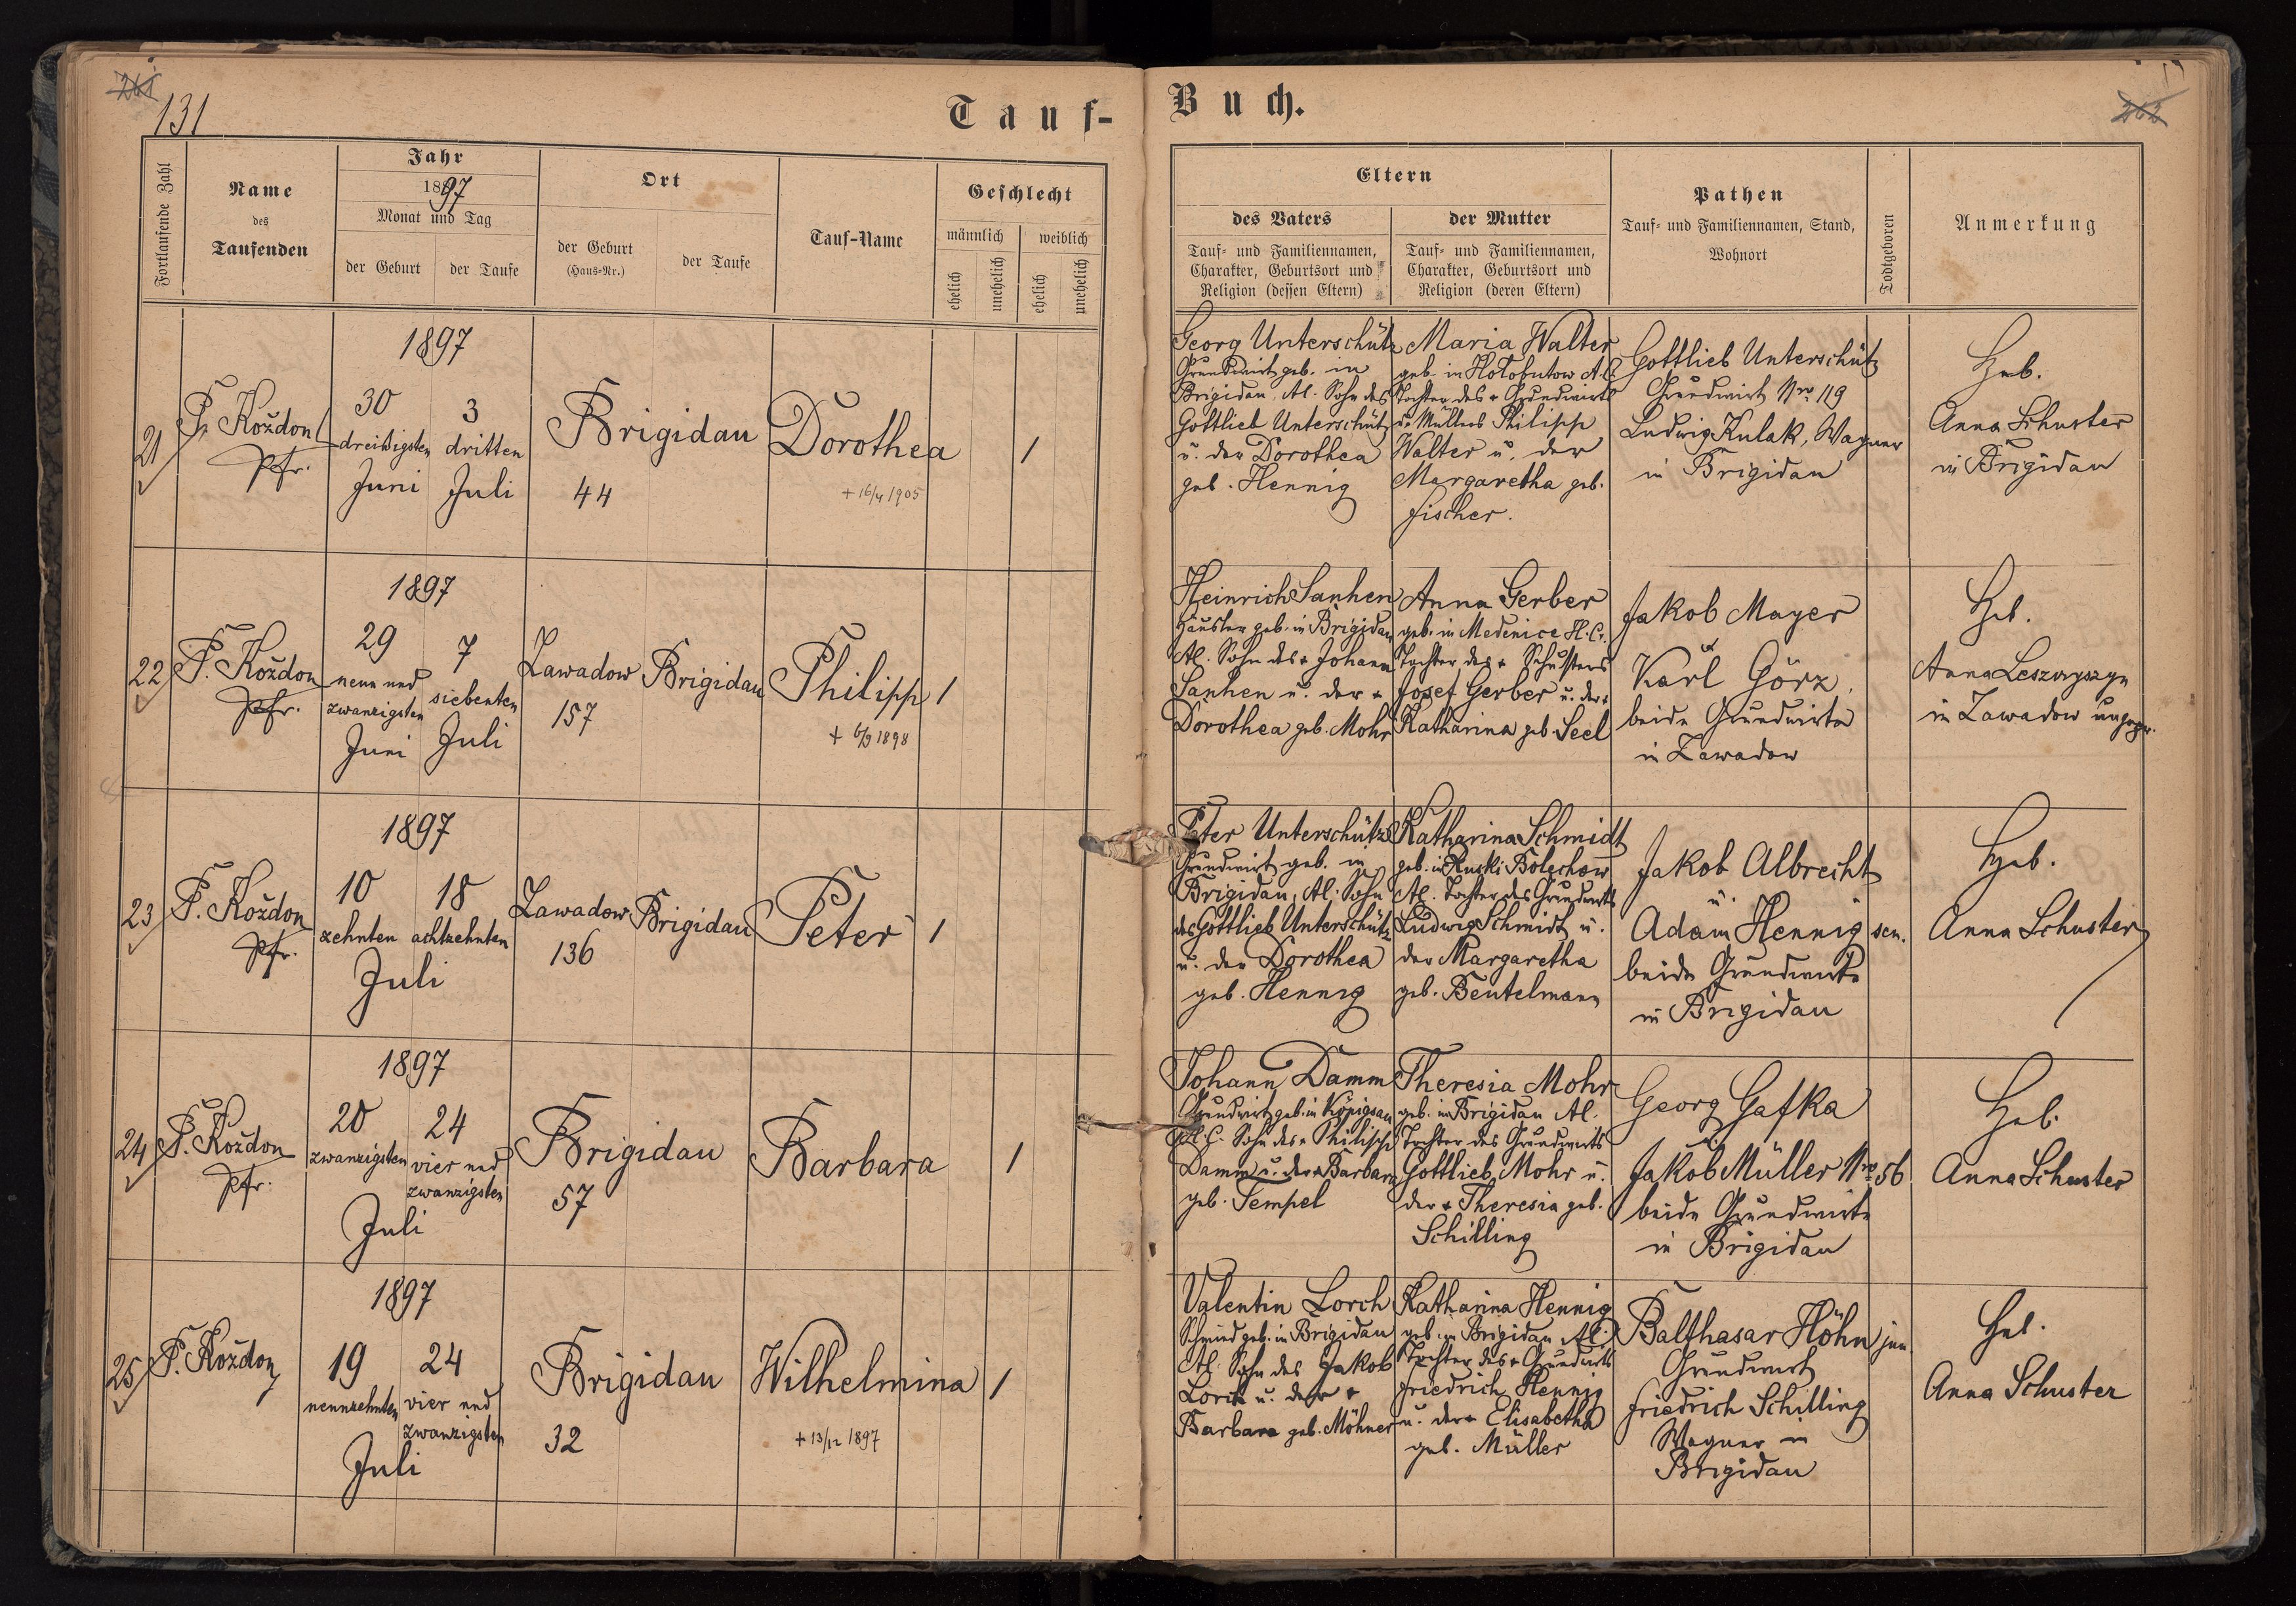 261
131
Tauf-
Buch.
262
Fortlaufende Zahl
Name
des
Taufenden
Jahr
1897
Monat und Tag
der Geburt
der Taufe
Ort
der Geburt
(Haus-Nr.)
der Taufe
Tauf-Name
Geschlecht
männlich
weiblich
ehelich
unehelich
ehelich
unehelich
Eltern
des Vaters
Tauf- und Familiennamen,
Charakter, Geburtsort und
Religion (dessen Eltern)
der Mutter
Tauf- und Familiennamen,
Charakter, Geburtsort und
Religion (deren Eltern)
Pathen
Tauf- und Familiennamen, Stand,
Wohnort
Todtgeboren
Anmerkung
21
F. Koždon
Pfr.
1897
30
dreißigsten
Juni
3
dritten
Juli
Brigidau
44
Dorothea
+ 16/4 1905
1
Georg Unterschütz
Grundwirt geb. in
Brigidau, Al. Sohn des
Gottlieb Unterschütz
u. der Dorothea
geb. Hennig
Maria Walter
geb. in Holobutow A.C.
Tochter des + Grundwirts
u. Müllers Philipp
Walter u. der
Margaretha geb.
Fischer.
Gottlieb Unterschütz
Grundwirt Nro 119
Ludwig Kulak, Wagner
in Brigidau
Heb.
Anna Schuster
in Brigidau
22
F. Koždon
Pfr.
1897
29
neun und
zwanzigsten
Juni
7
siebenten
Juli
Zawadow
157
Brigidau
Philipp
+ 6/9 1898
1
Heinrich Sanhen
Häusler geb. in Brigidau
Al. Sohn des + Johann
Sanhen u. der +
Dorothea geb. Mohr
Anna Gerber
geb. in Medenice H.C.
Tochter des + Schusters
Josef Gerber u. der +
Katharina geb. Seel
Jakob Mayer
u
Karl Görz,
beide Grundwirte
in Zawadow
Heb.
Anna
in Zawadow ungepr.
23
F. Koždon
Pfr.
1897
10
zehnten
18
achtzehnten
Juli
Zawadow
136
Brigidau
Peter
1
Peter Unterschütz
Grundwirt geb. in
Brigidau, Al. Sohn
des Gottlieb Unterschütz
u. der Dorothea
geb. Hennig
Katharina Schmidt
geb. in Ruski Bolechow
Al. Tochter des Grundwirts
Ludwig Schmidt u.
der Margaretha
geb. Beutelmann
Jakob Albrecht
u.
Adam Hennig sen.
beide Grundwirte
in Brigidau
Heb.
Anna Schuster
24
F. Koždon
Pfr.
1897
20
zwanzigsten
24
vier und
zwanzigsten
Juli
Brigidau
57
Barbara
1
Johann Damm
Grundwirt geb. in Königsau
H.C. Sohn des + Philipp
Damm u. der + Barbara
geb. Tempel
Theresia Mohr
geb. in Brigidau Al.
Tochter des Grundwirts
Gottlieb Mohr u.
der + Theresia geb.
Schilling
Georg Gafka
u
Jakob Müller Nro 56
beide Grundwirte
in Brigidau
Heb.
Anna Schuster
25
F. Koždon
1897
19
neunzehnten
24
vier und
zwanzigsten
Juli
Brigidau
32
Wilhelmina
+ 13/12 1897
1
Valentin Lorch
Schmied geb. in Brigidau
Al. Sohn des Jakob
Lorch u. der +
Barbara geb. Möhner
Katharina Hennig
geb. in Brigidau, Al.
Tochter des + Grundwirts
Friedrich Hennig
u. der + Elisabetha
geb. Müller
Balthasar Höhn jun
Grundwirt
Friedrich Schilling
Wagner in
Brigidau
Heb.
Anna Schuster